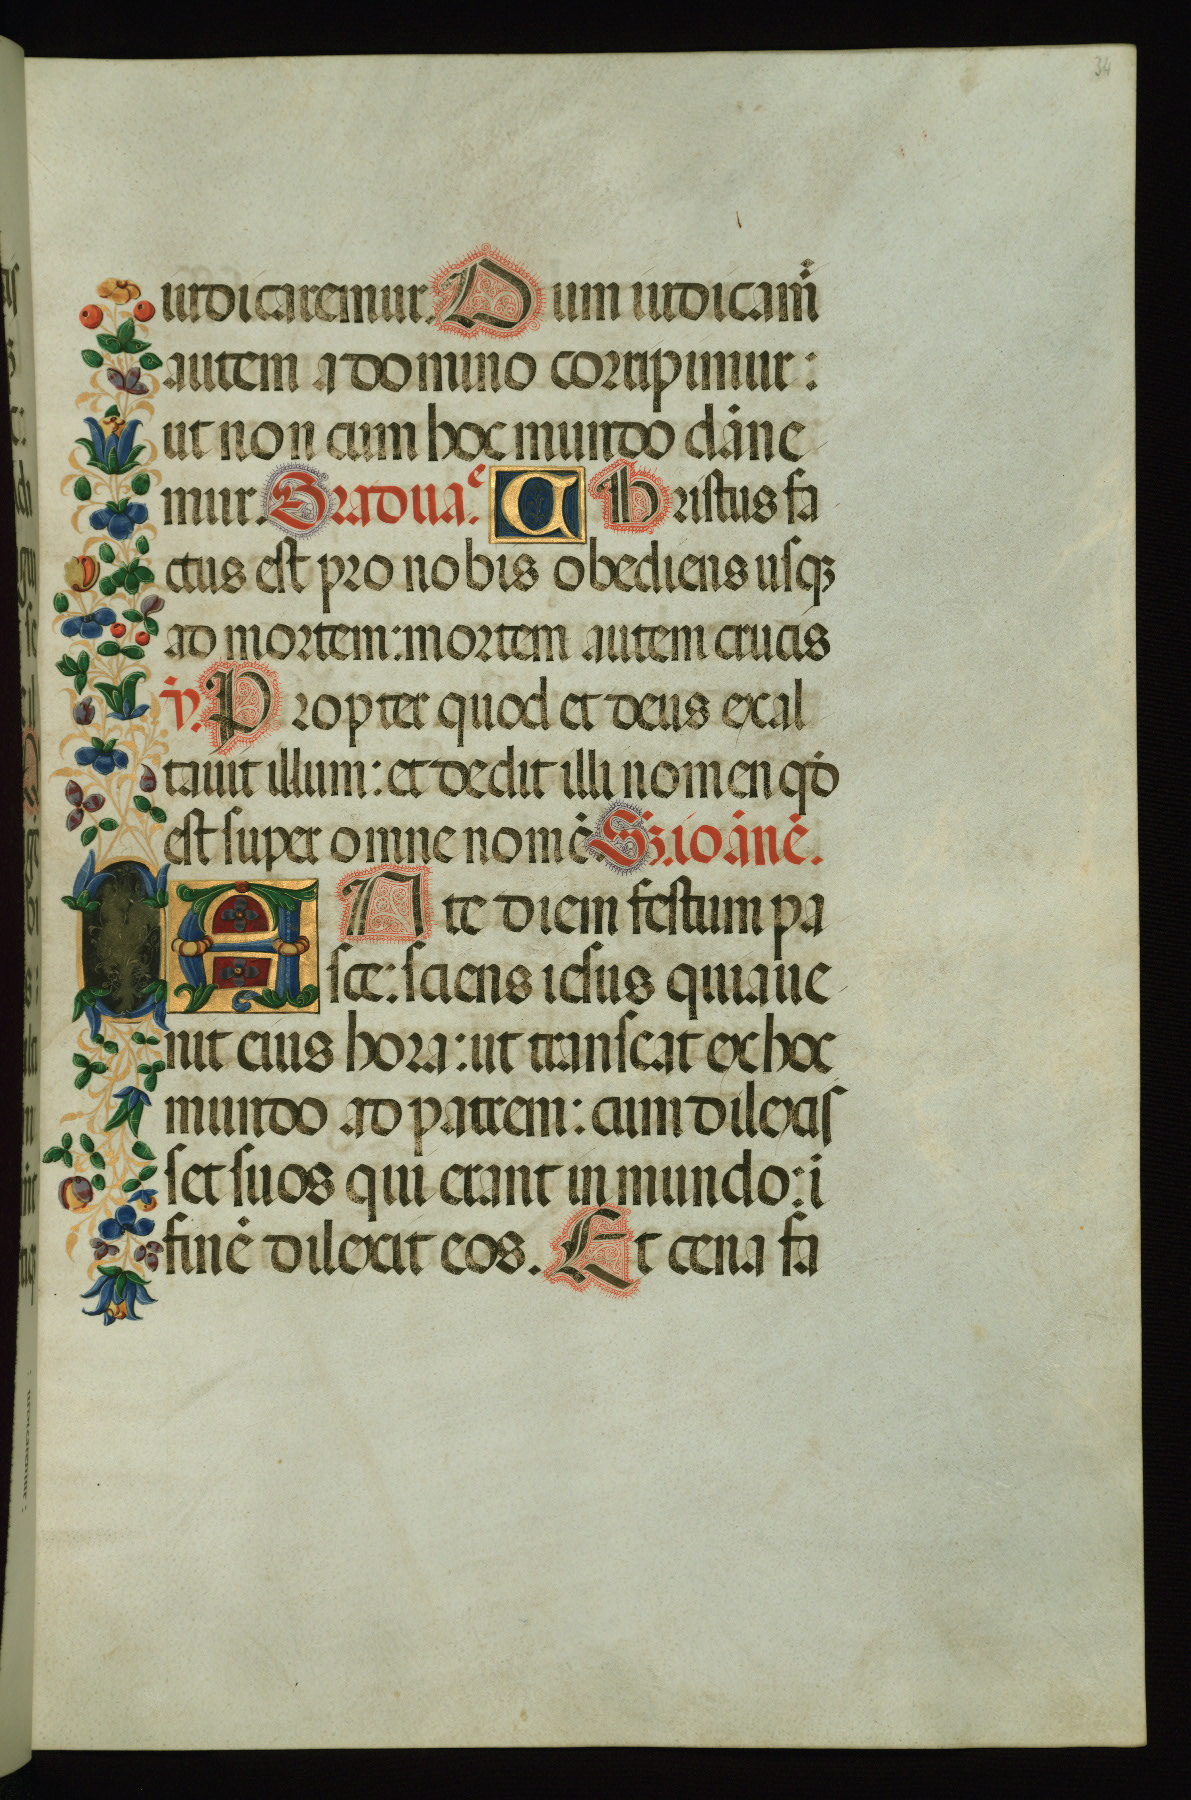 34
iudicaremur. Dum iudicam̃
autem a domino corripimur:
ut non cum hoc mundo dãne
mur. Gradua^e. CHristus fa
ctus est pro nobis obediens usqꝫ
ad mortem: mortem autem crucis
ṽ. Propter quod et deus exal
tauit illum: et dedit illi nomen qđ
est super omne nomẽ. Sꝫ. ioãnẽ.
ANte diem festum pa
sce: sciens iesus quia ue
nit eius hora: ut transeat ex hoc
mundo ad patrem: cum dilexis
set suos qui erant in mundo: i
finẽ dilexit eos. Et cena fa